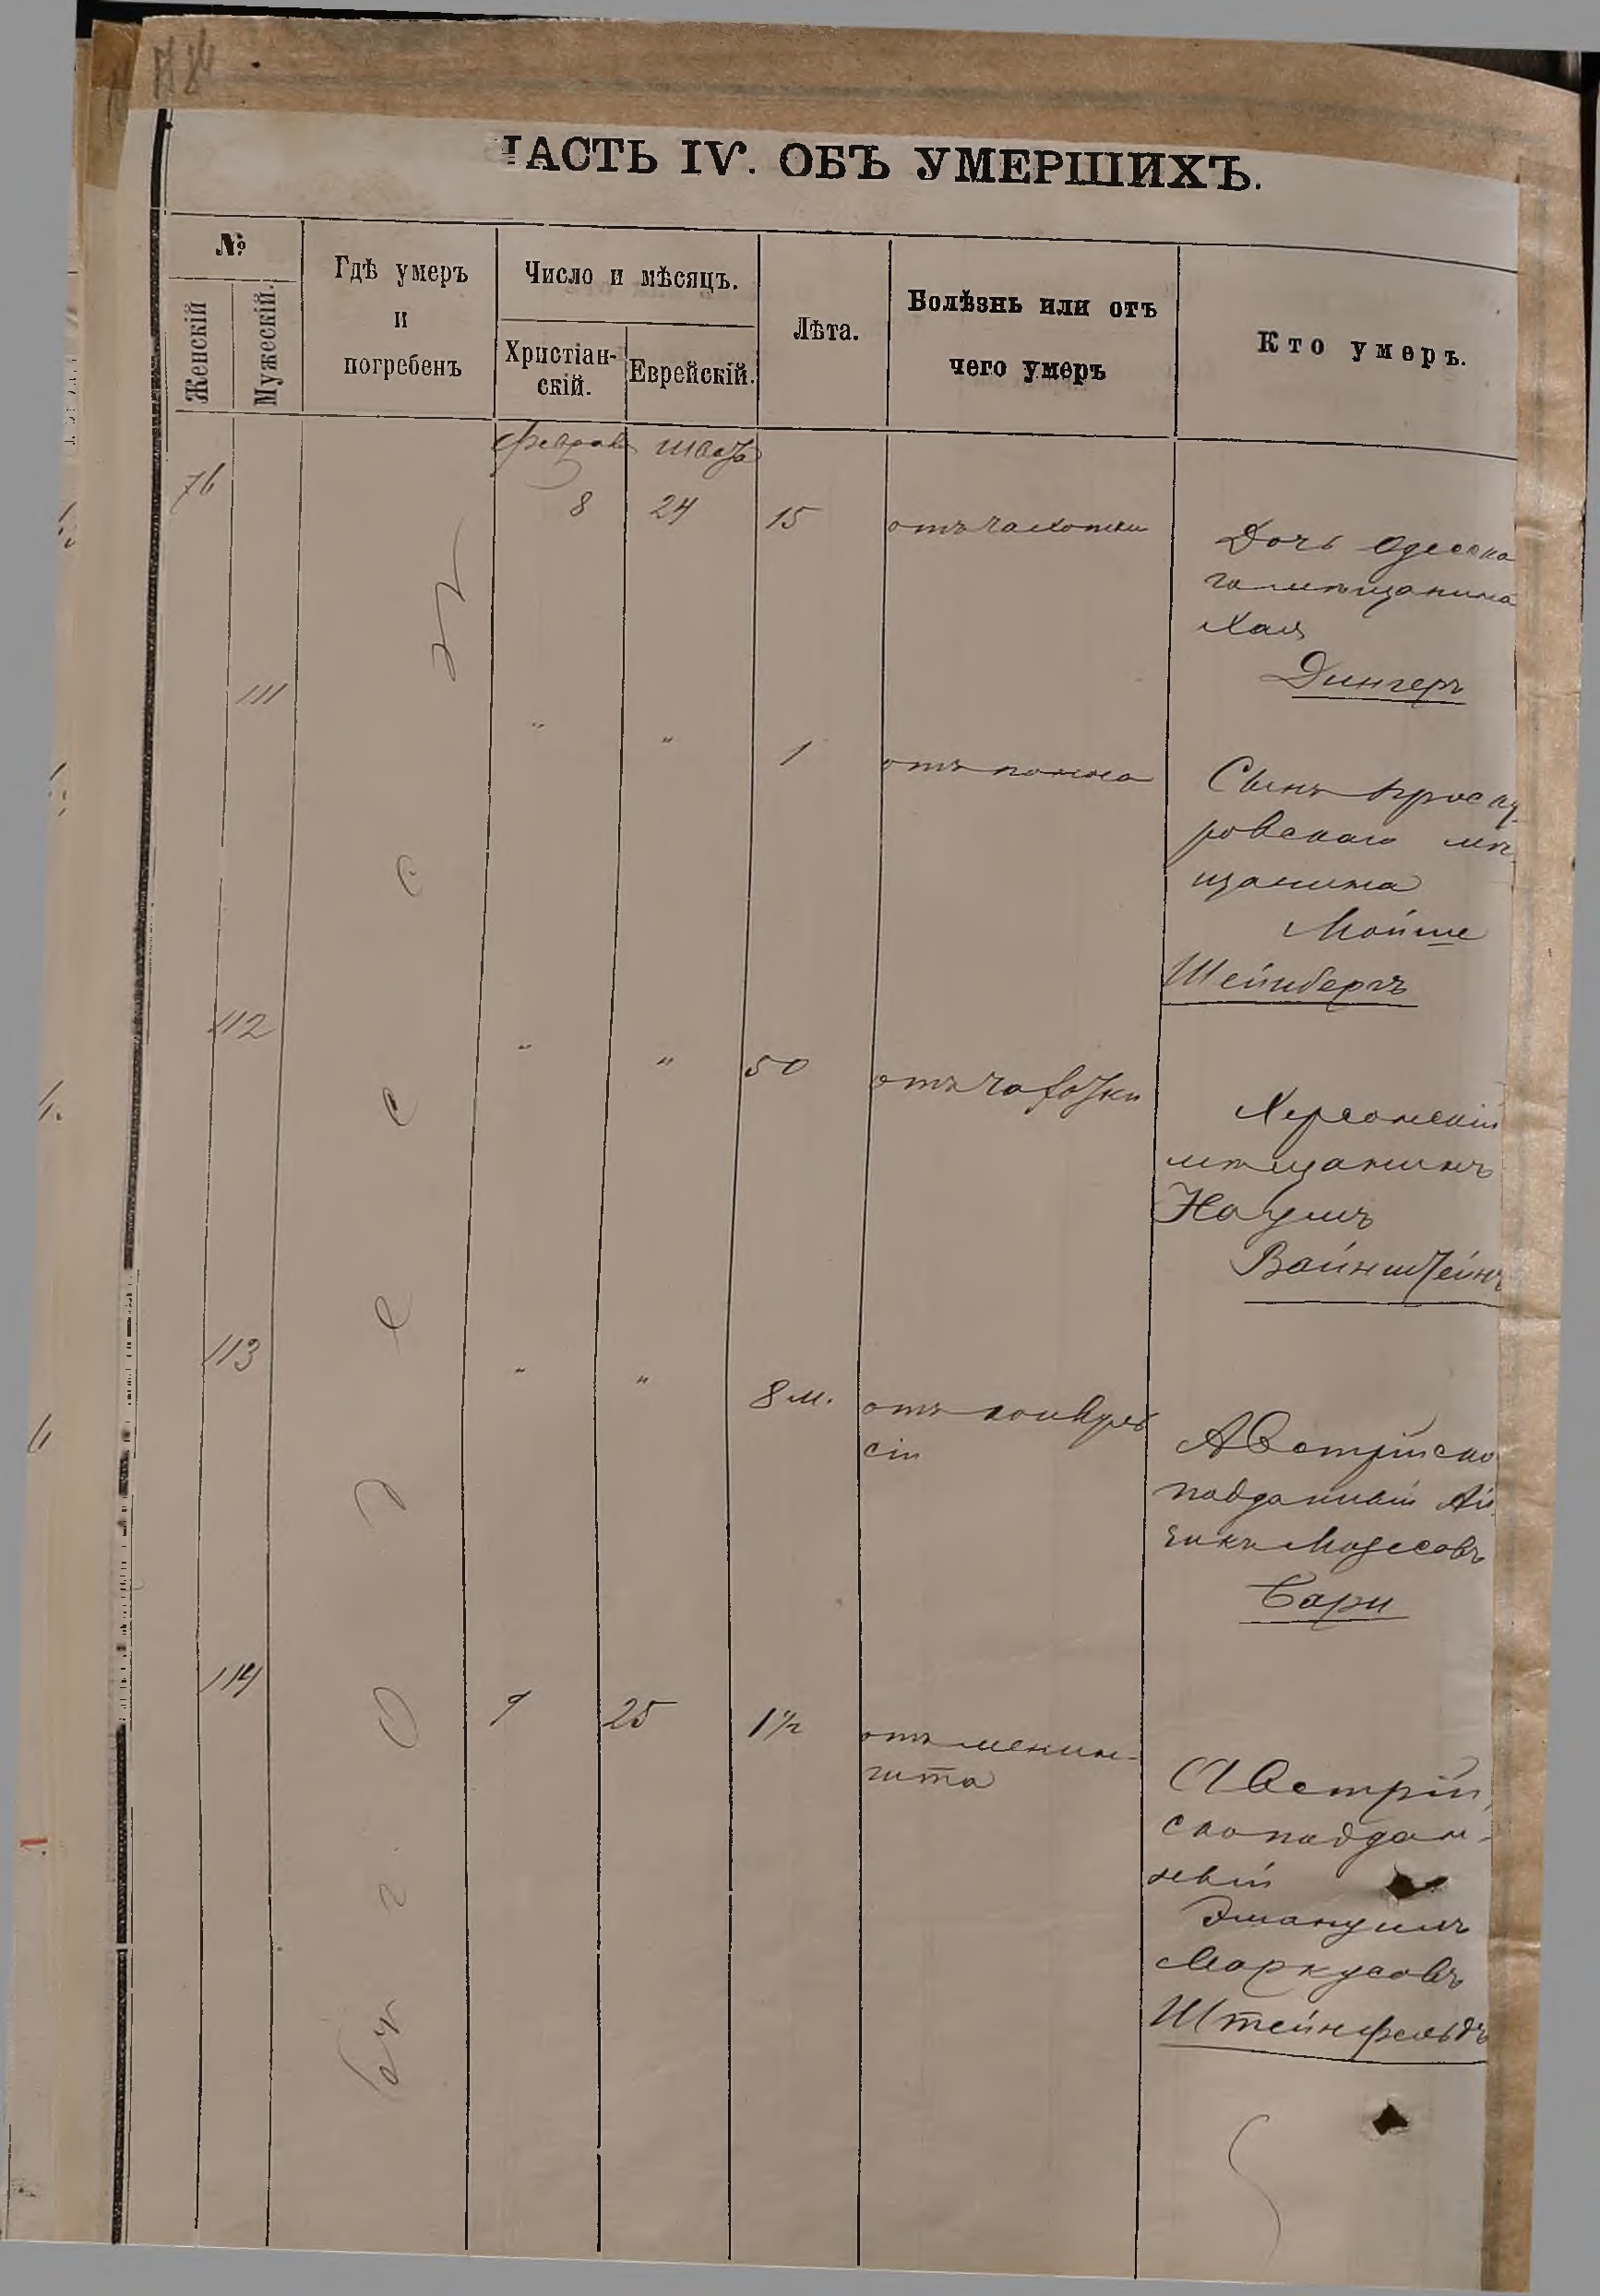 ЧАСТЬ IV. ОБЪ УМЕРШИХЪ.
№
Женскій
Мужескій.
Гдѣ умеръ
и
погребенъ
Число и мѣсяцъ.
Христіан-
скій.
Еврейскій.
Лѣта.
Болѣзнь или отъ
чего умеръ
Кто умеръ.
76
8 24 15 отъ чахотки
Дочь Одесска
го мѣщанина
Хая
Дингеръ
111
" " 1
Сынъ Проску
ровскаго мѣ
щанина
Мойше
Шейнбергъ
112
" " 50
Херсонскій
мѣщанинъ
Наумъ
Вайнштейнъ
113
" " 8 м. отъ конвуль
сіи
Австрійско
подданный Ай
зикъ Мозесовъ
Бари
114
9 25 1½ отъ менин-
гита
Австрій
скоподдан-
ный
Эмануилъ
Маркусовъ
Штейнфельдъ